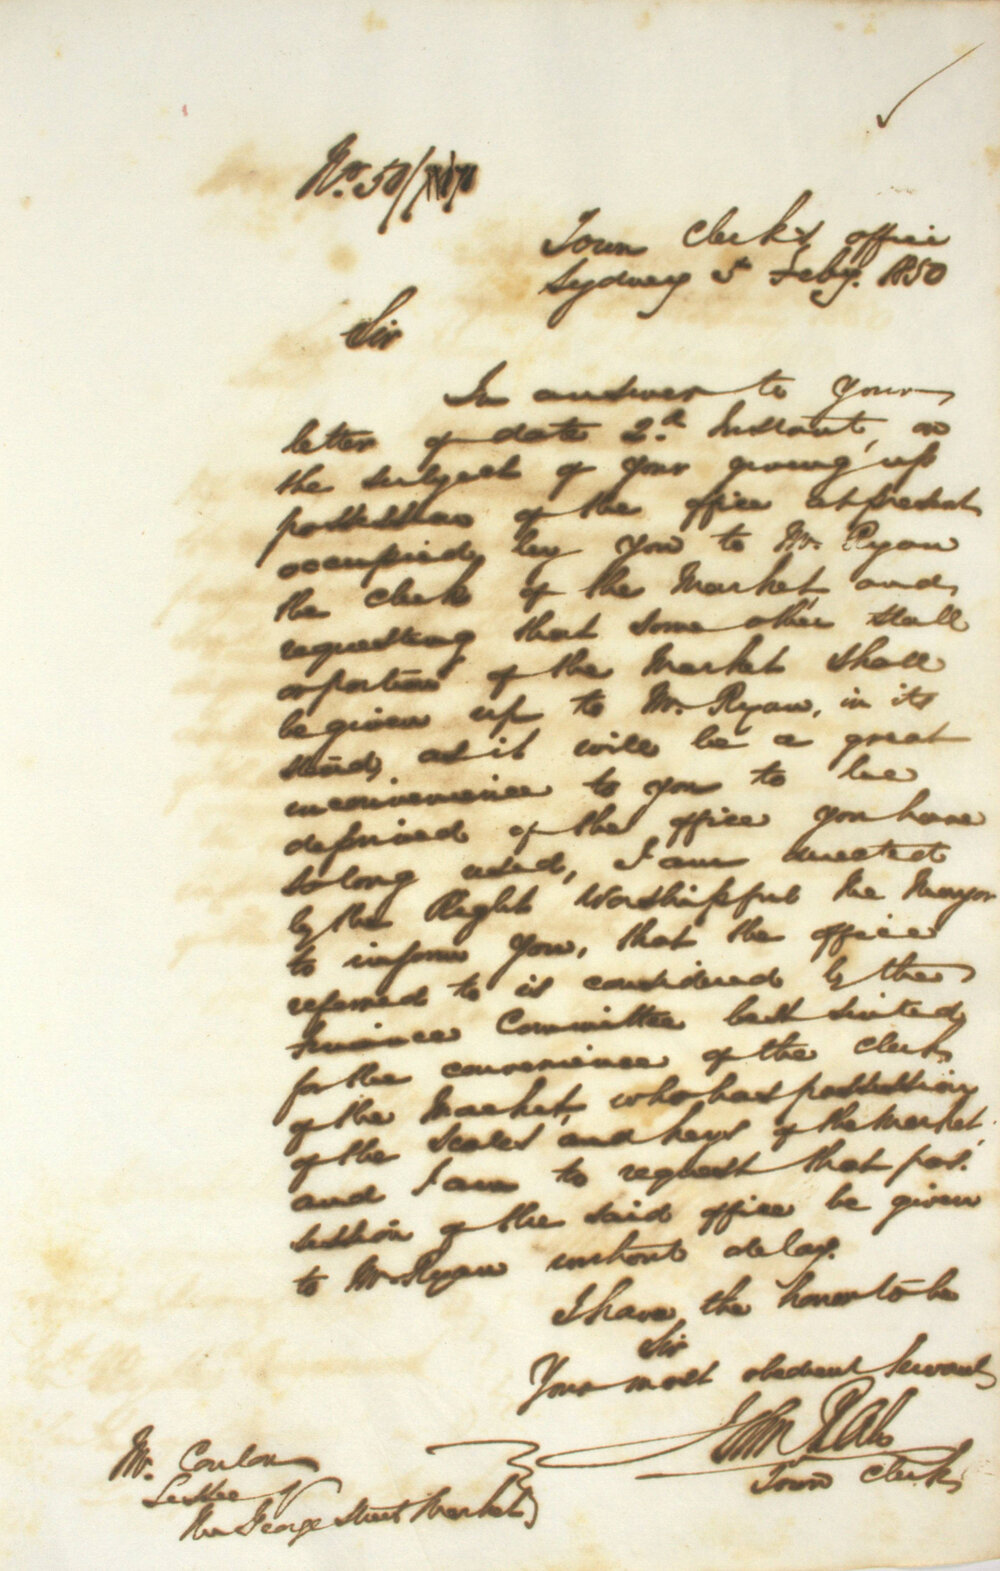 No. 50/
Town Clerk's office
Sydney 5th Feby. 1850
Sir
In answer to your
letter of date 2d. Instant, on
the subject of your giving up
possession of the office at present
occupied by you to Mr. Ryan
the clerk of the Market and
requesting that some other stall
or portion of the Market shall
be given up to Mr. Ryan, in its
stead, as it will be a great
inconvenience to you to be
deprived of the office you have
so long used, I am directed
by the Right Worshipful the Mayor
to inform you, that the office
referred to is considered by the
Finance Committee best suited
for the convenience of the clerk
of the Market, who has possession
of the scales and keys of the Market,
and I am to request that pos.
session of the said office be given
to Mr. Ryan without delay.
I have the honor to be
Sir
Your most obedient Servant
John Rae
Town Clerk
Mr. Conlon
Lessee of
the George Street Market